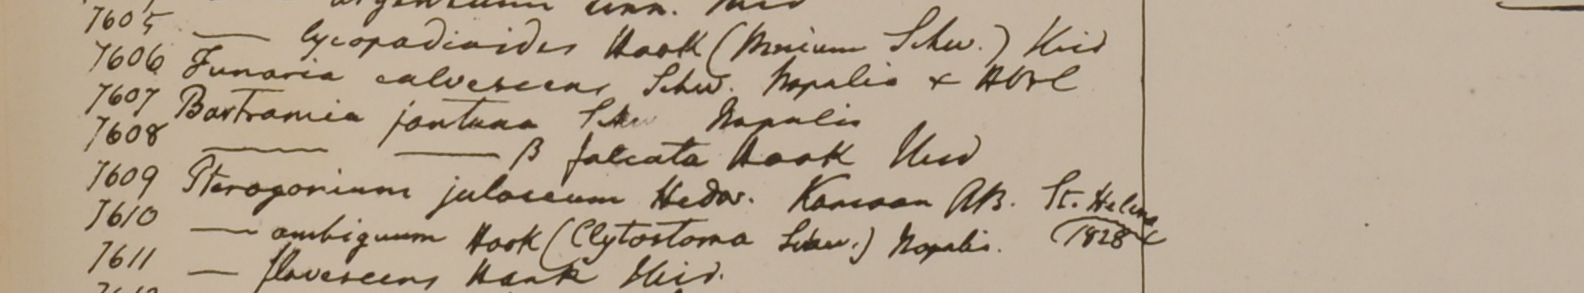 7605
— lycopadioides Hook (Mnium Schw.) Ibid
7606 Funaria calvescens Schw. Napalia & HBC
7607 Bartramia fontana Schw Napalia
7608 — — β falcata Hook Ibid
7609 Pterogonium julaceum Hedw. Kamaon RB. St. Helena 1828
7610 — ambiguum Hook (Clytostoma Schw.) Napalia.
7611 — flavescens Hook Ibid.